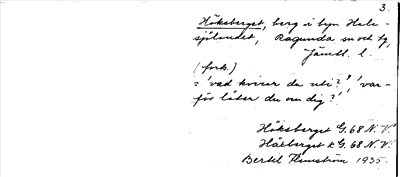 3.
Höksberget, berg i byn Hels-
sjölandet, Ragunda sn och tg,
Jämtl. l.
(forts.)
= 'vad kvirar du uti?', 'var-
för låter du om dig?'
Höksberget G. 68 N. V.
Håeberget k G. 68 N. V.
Bertil Flemström 1935.